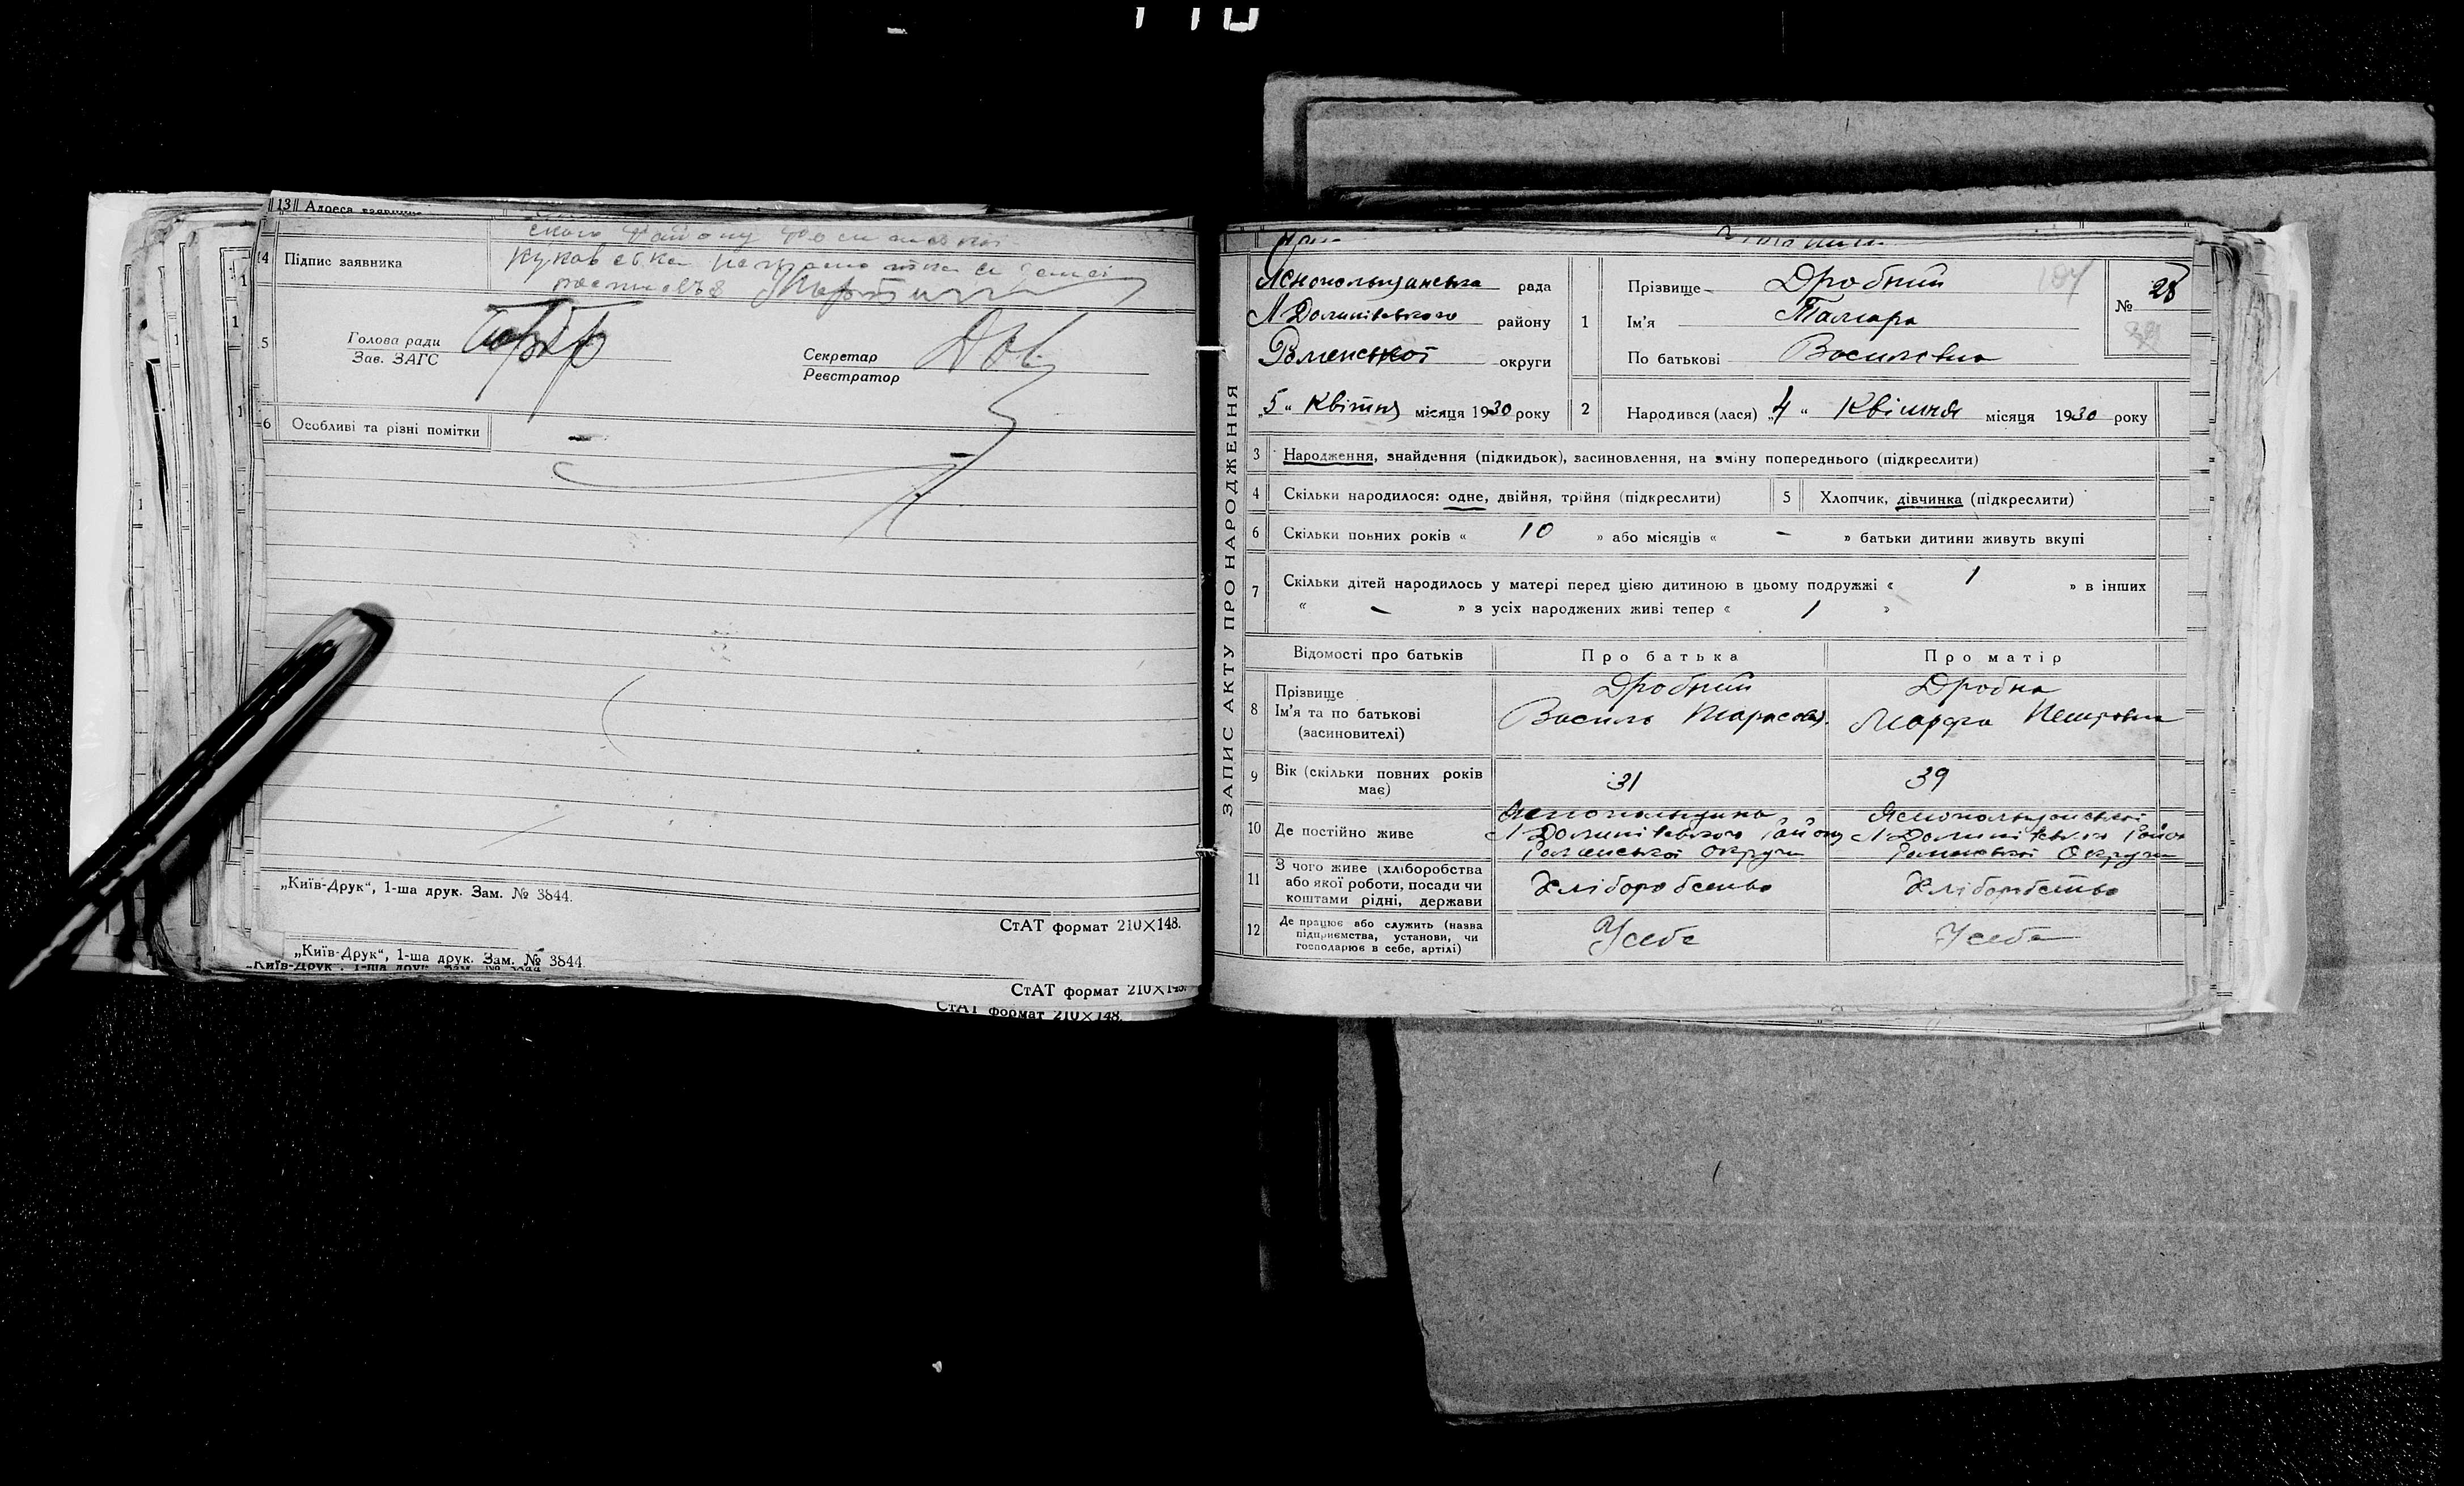 13 Адреса заявника
14 Підпис заявника
5 Голова ради
Зав. ЗАГС
Секретар
Реєстратор
6 Особливі та різні помітки
„Київ-Друк“, 1-ша друк. Зам. № 3844.
СтАТ формат 210×148.
„Київ-Друк“, 1-ша друк. Зам. № 3844
„Київ-Друк“, 1-ша друк. Зам. № 3844
СтАТ формат 210×148.
СтАТ формат 210×148.
ЗАПИС АКТУ ПРО НАРОДЖЕННЯ
Яснопольщанська рада
округи
Роменської
району
„5“ Квітня місяця 1930 року
1 Прізвище Дробний
Ім'я Тамара
По батькові Василовна
№ 28
2 Народився (лася) „4“ Квітня місяця 1930 року
3 Народження, знайдення (підкидьок), засиновлення, на зміну попереднього (підкреслити)
4 Скільки народилося: одне, двійня, трійня (підкреслити) 5 Хлопчик, дівчинка (підкреслити)
6 Скільки повних років « 10 » або місяців « - » батьки дитини живуть вкупі
7 Скільки дітей народилось у матері перед цією дитиною в цьому подружжі « 1 » в інших
« - » з усіх народжених живі тепер « 1 »
Відомості про батьків Про батька Про матір
8 Прізвище Дробний Дробна
Ім'я та по батькові Василь Тарасов. Марфа Петровна
(засиновителі)
9 Вік (скільки повних років має) 31 39
10 Де постійно живе
Роменської Округи Роменської Округи
11 З чого живе (хліборобства або якої роботи, посади чи коштами рідні, держави Хліборобство Хліборобство
12 Де працює або служить (назва підприємства, установи, чи господарює в себе, артілі) У себе У себе